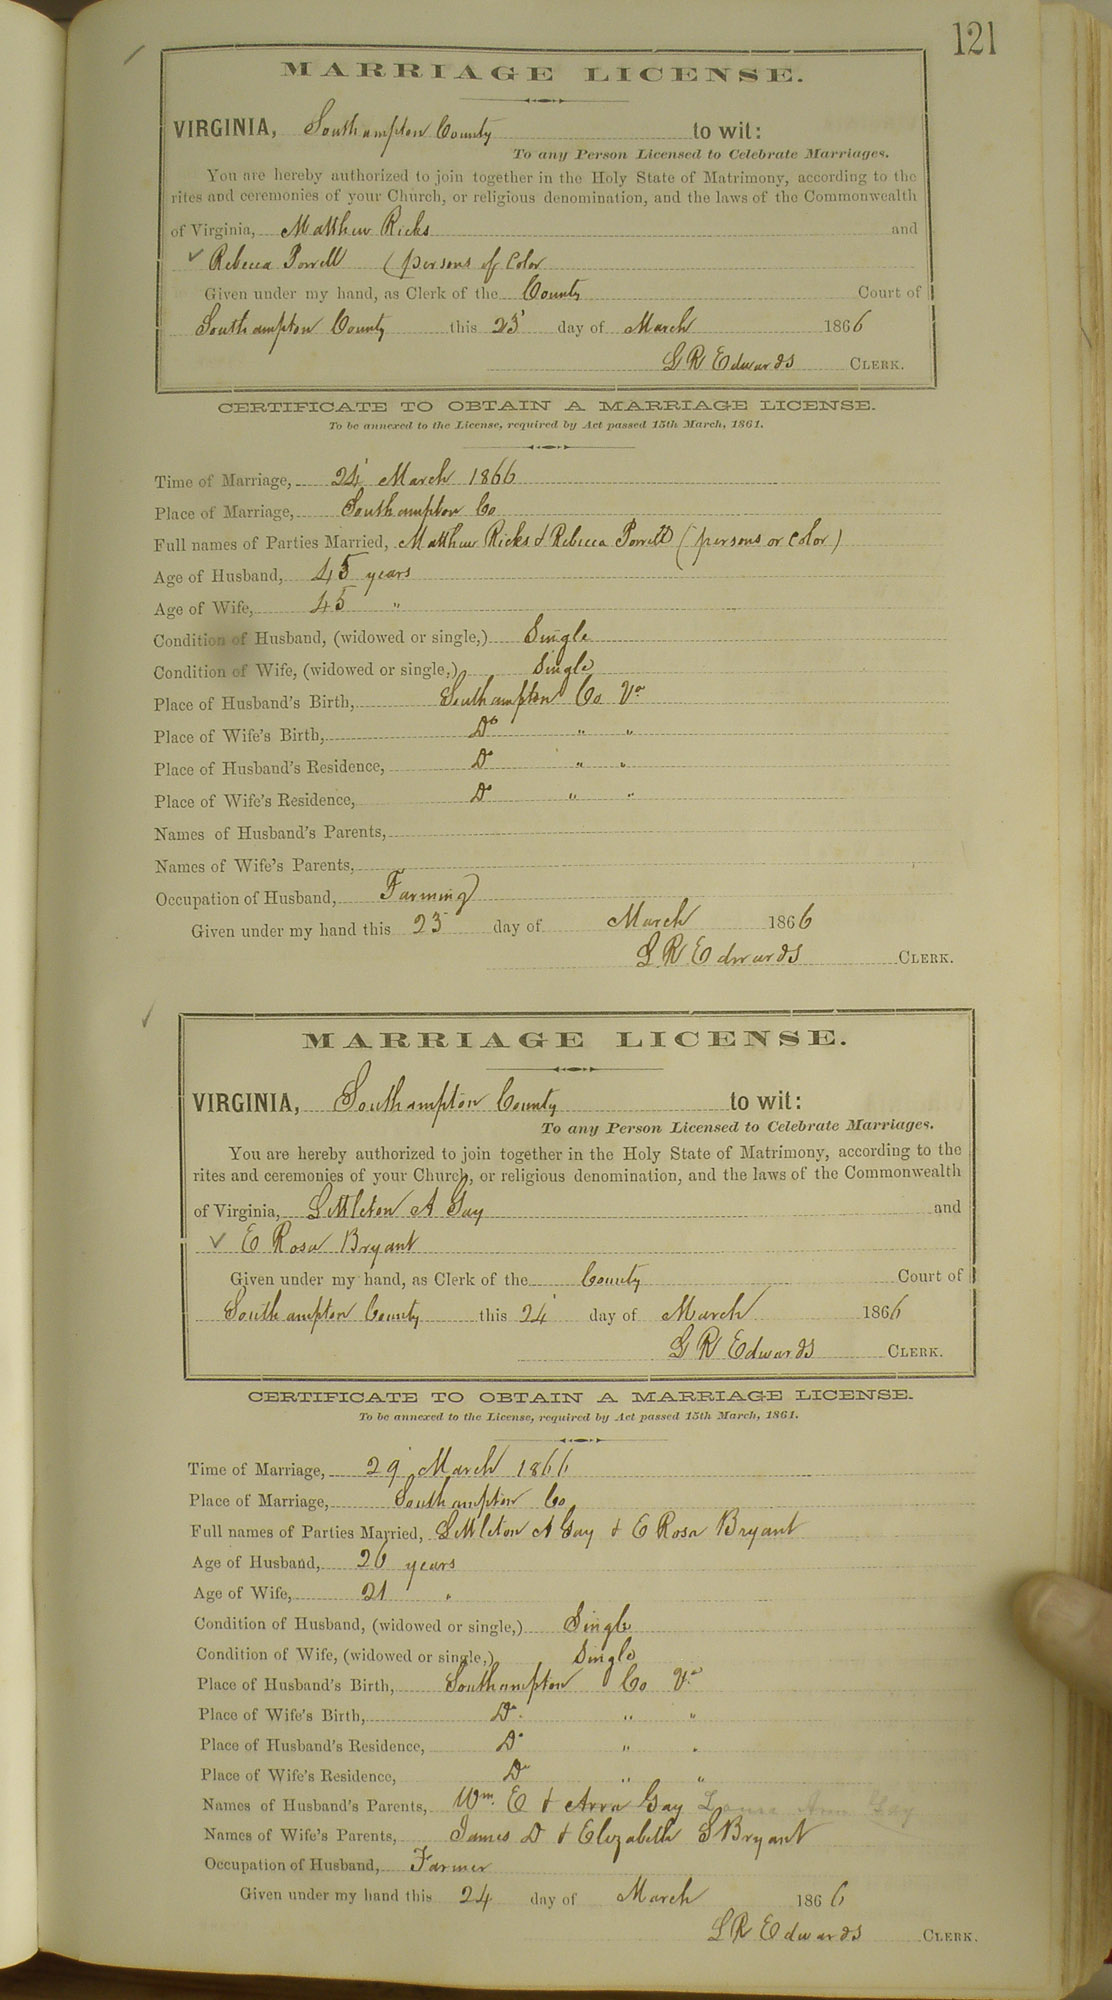 121
MARRIAGE LICENSE.
VIRGINIA, Southampton County to wit:
To any Person Licensed to Celebrate Marriages.
You are hereby authorized to join together in the Holy State of Matrimony, according to the
rites and ceremonies of your Church, or religious denomination, and the laws of the Commonwealth
of Virginia, Matthew Ricks and
✓ Rebecca Porrell (persons of Color
Given under my hand, as Clerk of the County Court of
Southampton County this 23 day of March 1866
L R Edwards CLERK.
CERTIFICATE TO OBTAIN A MARRIAGE LICENSE.
To be annexed to the License, required by Act passed 15th March, 1861.
Time of Marriage, 24 March 1866
Place of Marriage, Southampton Co
Full names of Parties Married, Matthew Ricks & Rebecca (persons or Color)
Age of Husband, 45 years
Age of Wife, 45 "
Condition of Husband, (widowed or single,) Single
Condition of Wife, (widowed or single,) Single
Place of Husband's Birth, Southampton Co Va
Place of Wife's Birth, Do " "
Place of Husband's Residence, Do " "
Place of Wife's Residence, Do " "
Names of Husband's Parents,
Names of Wife's Parents,
Occupation of Husband, Farming
Given under my hand this 23 day of March 1866
L R Edwards CLERK.
MARRIAGE LICENSE.
VIRGINIA, Southampton County to wit:
To any Person Licensed to Celebrate Marriages.
You are hereby authorized to join together in the Holy State of Matrimony, according to the
rites and ceremonies of your Church, or religious denomination, and the laws of the Commonwealth
of Virginia, Littleton A Gay and
✓ E Rosa Bryant
Given under my hand, as Clerk of the County Court of
Southampton County this 24 day of March 1866
L R Edwards CLERK.
CERTIFICATE TO OBTAIN A MARRIAGE LICENSE.
To be annexed to the License, required by Act passed 15th March, 1861.
Time of Marriage, 29 March 1866
Place of Marriage, Southampton Co
Full names of Parties Married, Littleton A Gay & E Rosa Bryant
Age of Husband, 26 years
Age of Wife, 21 "
Condition of Husband, (widowed or single,) Single
Condition of Wife, (widowed or single,) Single
Place of Husband's Birth, Southampton Co Va
Place of Wife's Birth, Do " "
Place of Husband's Residence, Do " "
Place of Wife's Residence, Do " "
Names of Husband's Parents, Wm. E & Gay Louisa Ann Gay
Names of Wife's Parents, James D & Elizabeth S Bryant
Occupation of Husband, Farmer
Given under my hand this 24 day of March 1866
L R Edwards CLERK.